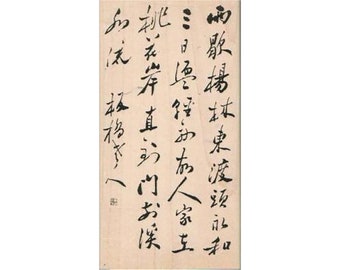 雨歇楊林東渡頭永和
三日盪輕舟故人家在
桃花岸直到門前溪
水流 板橋老人